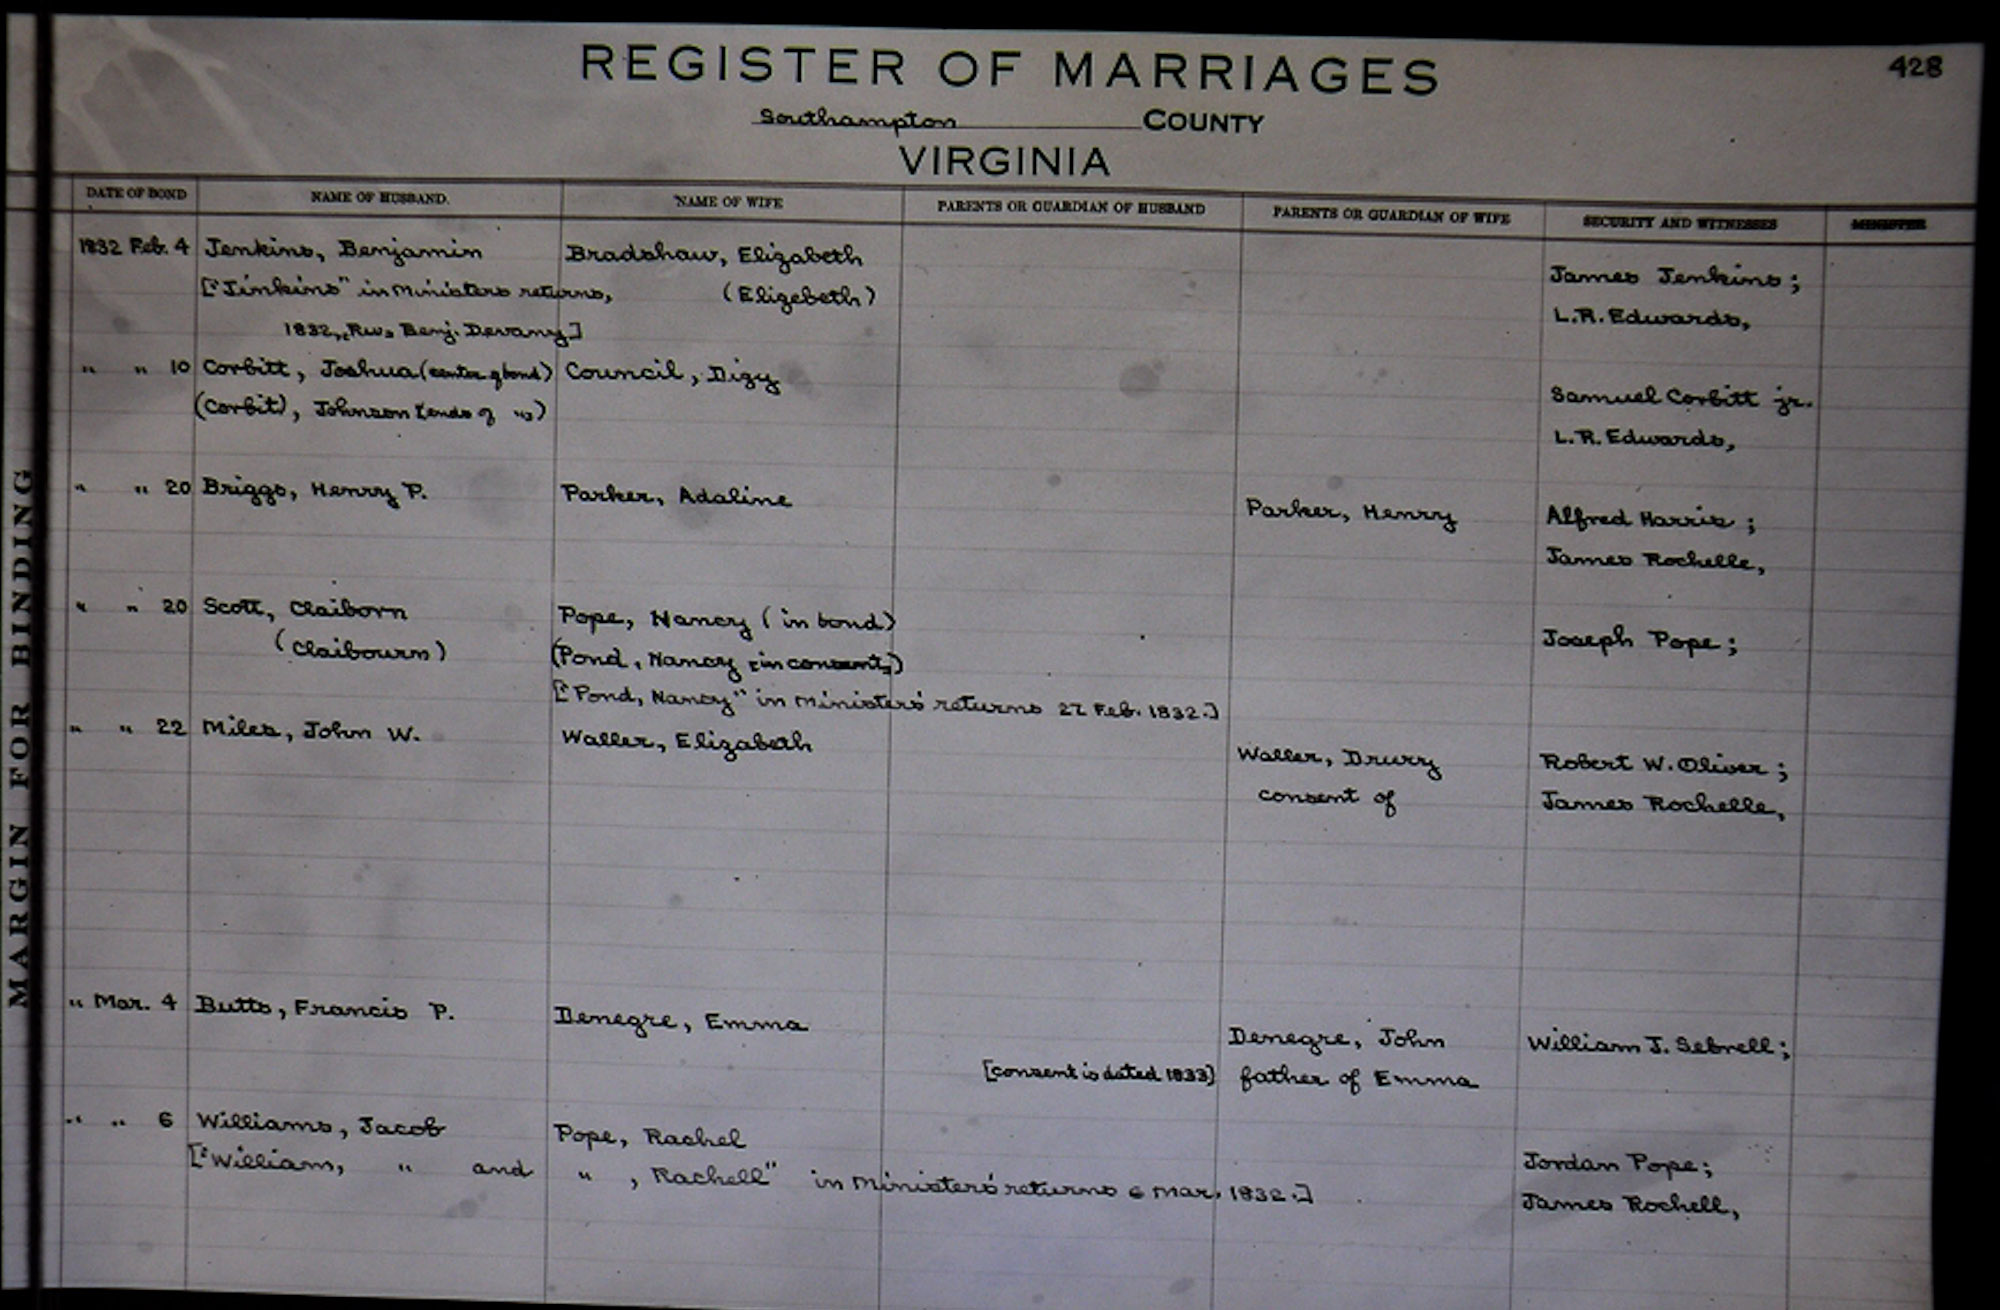 REGISTER OF MARRIAGES
428
Southampton COUNTY
VIRGINIA
MARGIN FOR BINDING
DATE OF BOND NAME OF HUSBAND. NAME OF WIFE PARENTS OR GUARDIAN OF HUSBAND PARENTS OR GUARDIAN OF WIFE SECURITY AND WITNESSES MINISTER
1832 Feb. 4 Jenkins, Benjamin Bradshaw, Elizabeth
James Jenkins;
["Jinkins" in Ministers returns, (Elizebeth)
L.R. Edwards,
1832, Rev. Benj. Devany]
" " 10 Corbitt, Joshua (center of bond) Council, Dizy
Samuel Corbitt jr.
(Corbit), Johnson (ends of ")
L.R. Edwards,
" " 20 Briggs, Henry P. Parker, Adaline Parker, Henry Alfred Harris;
James Rochelle,
" " 20 Scott, Claiborn Pope, Nancy (in bond)
Joseph Pope;
(Claibourn) (Pond, Nancy in consent,)
["Pond, Nancy" in Ministers' returns 22 Feb. 1832.]
" " 22 Miles, John W. Waller, Elizabeth Waller, Drury Robert W. Oliver;
consent of James Rochelle,
" Mar. 4 Butts, Francis P. Denegre, Emma Denegre, John William J. Sebrell;
[consent is dated 1833] father of Emma
" " 6 Williams, Jacob Pope, Rachel
Jordan Pope;
["William, " and " , Rachell" in Ministers' returns 6 Mar. 1832.]
James Rochell,